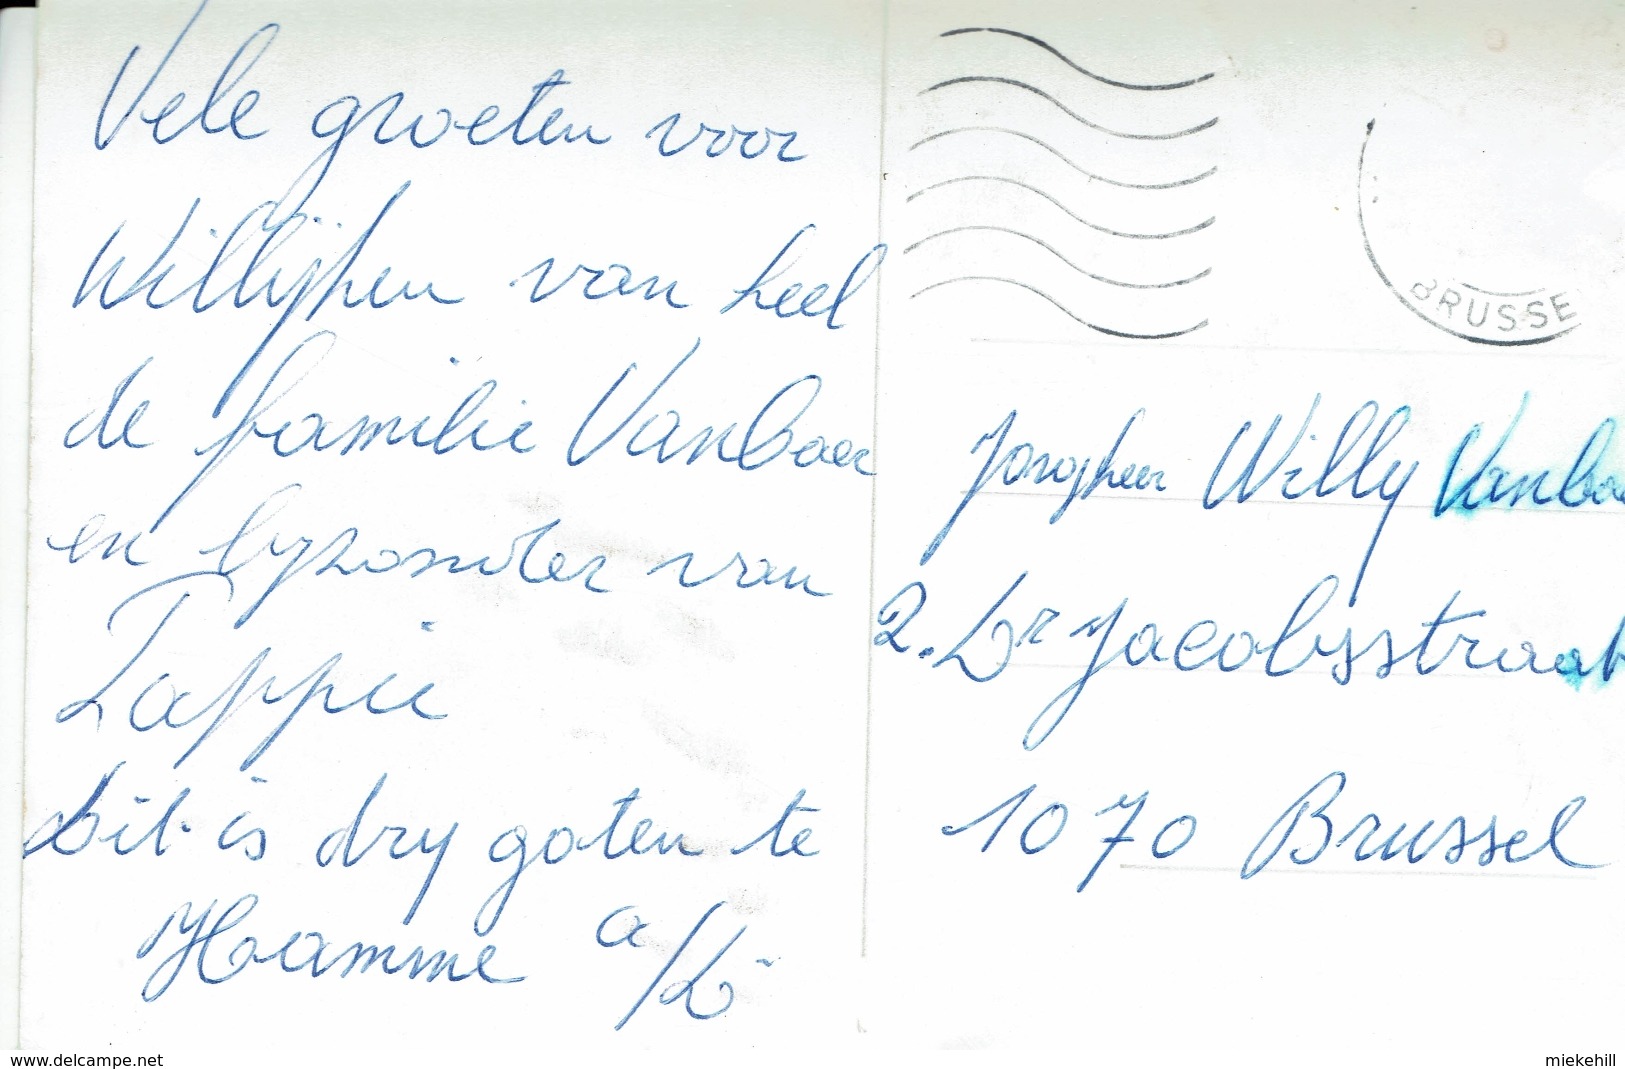 Vele groeten voor
Willijken van heel
de familie Vanboer
en byzonder van
Tappie
Dit is dry goten te
Hamme a/D
BRUSSE
Jongheer Willy Vanbo
2. Dr Jacobsstraat
1070 Brussel
www.delcampe.net
miekehill